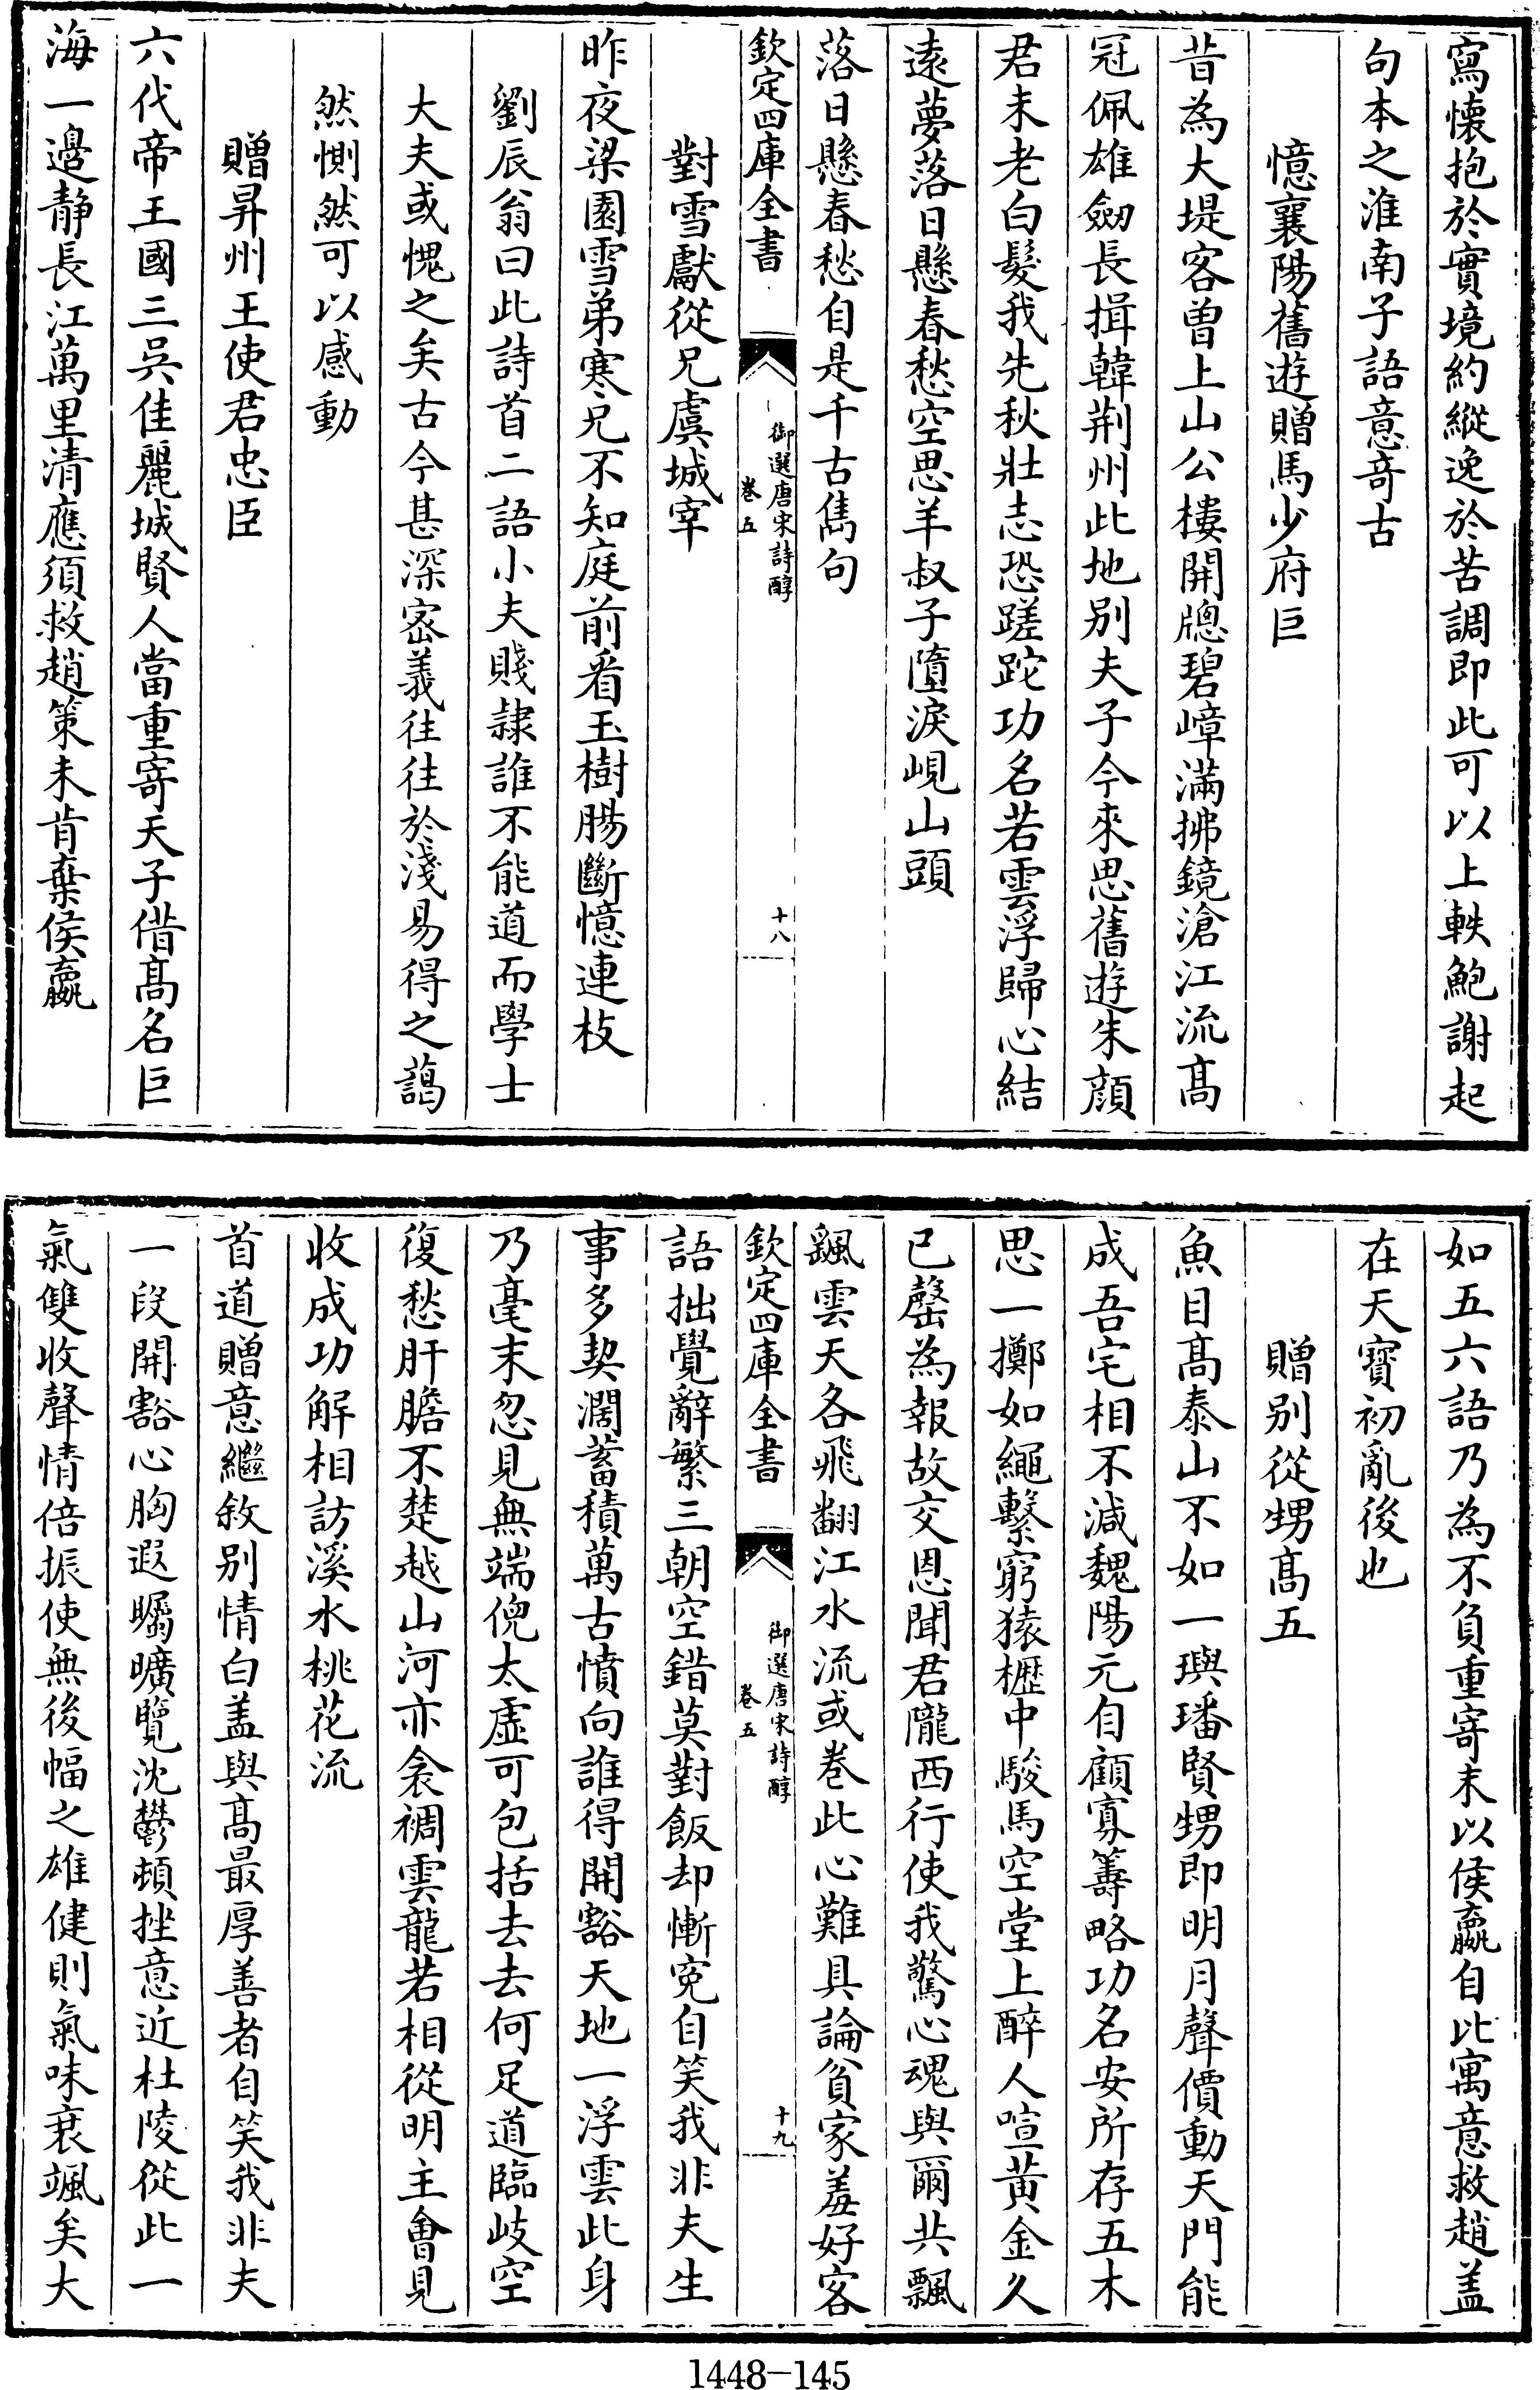 寫懷抱於實境約縱逸於苦調即此可以上軼鮑謝起
句本之淮南子語意竒古
憶襄陽舊遊贈馬少府巨
昔為大堤客曽上山公樓開牕碧嶂滿拂鏡滄江流髙
冠佩雄劒長揖韓荆州此地别夫子今來思舊遊朱顔
君未老白髮我先秋壮志恐蹉跎功名若雲浮歸心結
遠夢落日懸春愁空思羊叔子墮淚峴山頭
落日懸春愁自是千古雋句
欽定四庫全書
御選唐宋詩醇
卷五
十八
對雪獻從兄虞城宰
昨夜梁園雪弟寒兄不知庭前看玉樹腸斷憶連枝
劉辰翁曰此詩首二語小夫賤隸誰不能道而學士
大夫或愧之矣古今甚深宻義往往於淺易得之藹
然惻然可以感動
贈昇州王使君忠臣
六代帝王國三吳佳麗城賢人當重寄天子借髙名巨
海一邉静長江萬里清應須救趙策未肯棄侯嬴
如五六語乃為不負重寄末以侯嬴自比寓意救趙盖
在天寳初亂後也
贈别從甥髙五
魚目髙泰山不如一璵璠賢甥即明月聲價動天門能
成吾宅相不減魏陽元自顧寡籌略功名安所存五木
思一擲如繩繫窮猿櫪中駿馬空堂上醉人喧黄金久
已罄為報故交恩聞君隴西行使我驚心魂與爾共飄
颻雲天各飛翻江水流或巻此心難具論貧家羞好客
欽定四庫全書
御選唐宋詩醇
卷五
十九
語拙覺辭繁三朝空錯莫對飯却慚寃自笑我非夫生
事多契濶蓄積萬古憤向誰得開豁天地一浮雲此身
乃毫末忽見無端倪太虚可包括去去何足道臨岐空
復愁肝膽不楚越山河亦衾裯雲龍若相從明主㑹見
收成功解相訪溪水桃花流
首道贈意繼敘别情白盖與髙最厚善者自笑我非夫
一段開豁心胸遐矚曠覽沈鬱頓挫意近杜陵從此一
氣雙收聲情倍振使無後幅之雄健則氣味衰颯矣大
1448-145